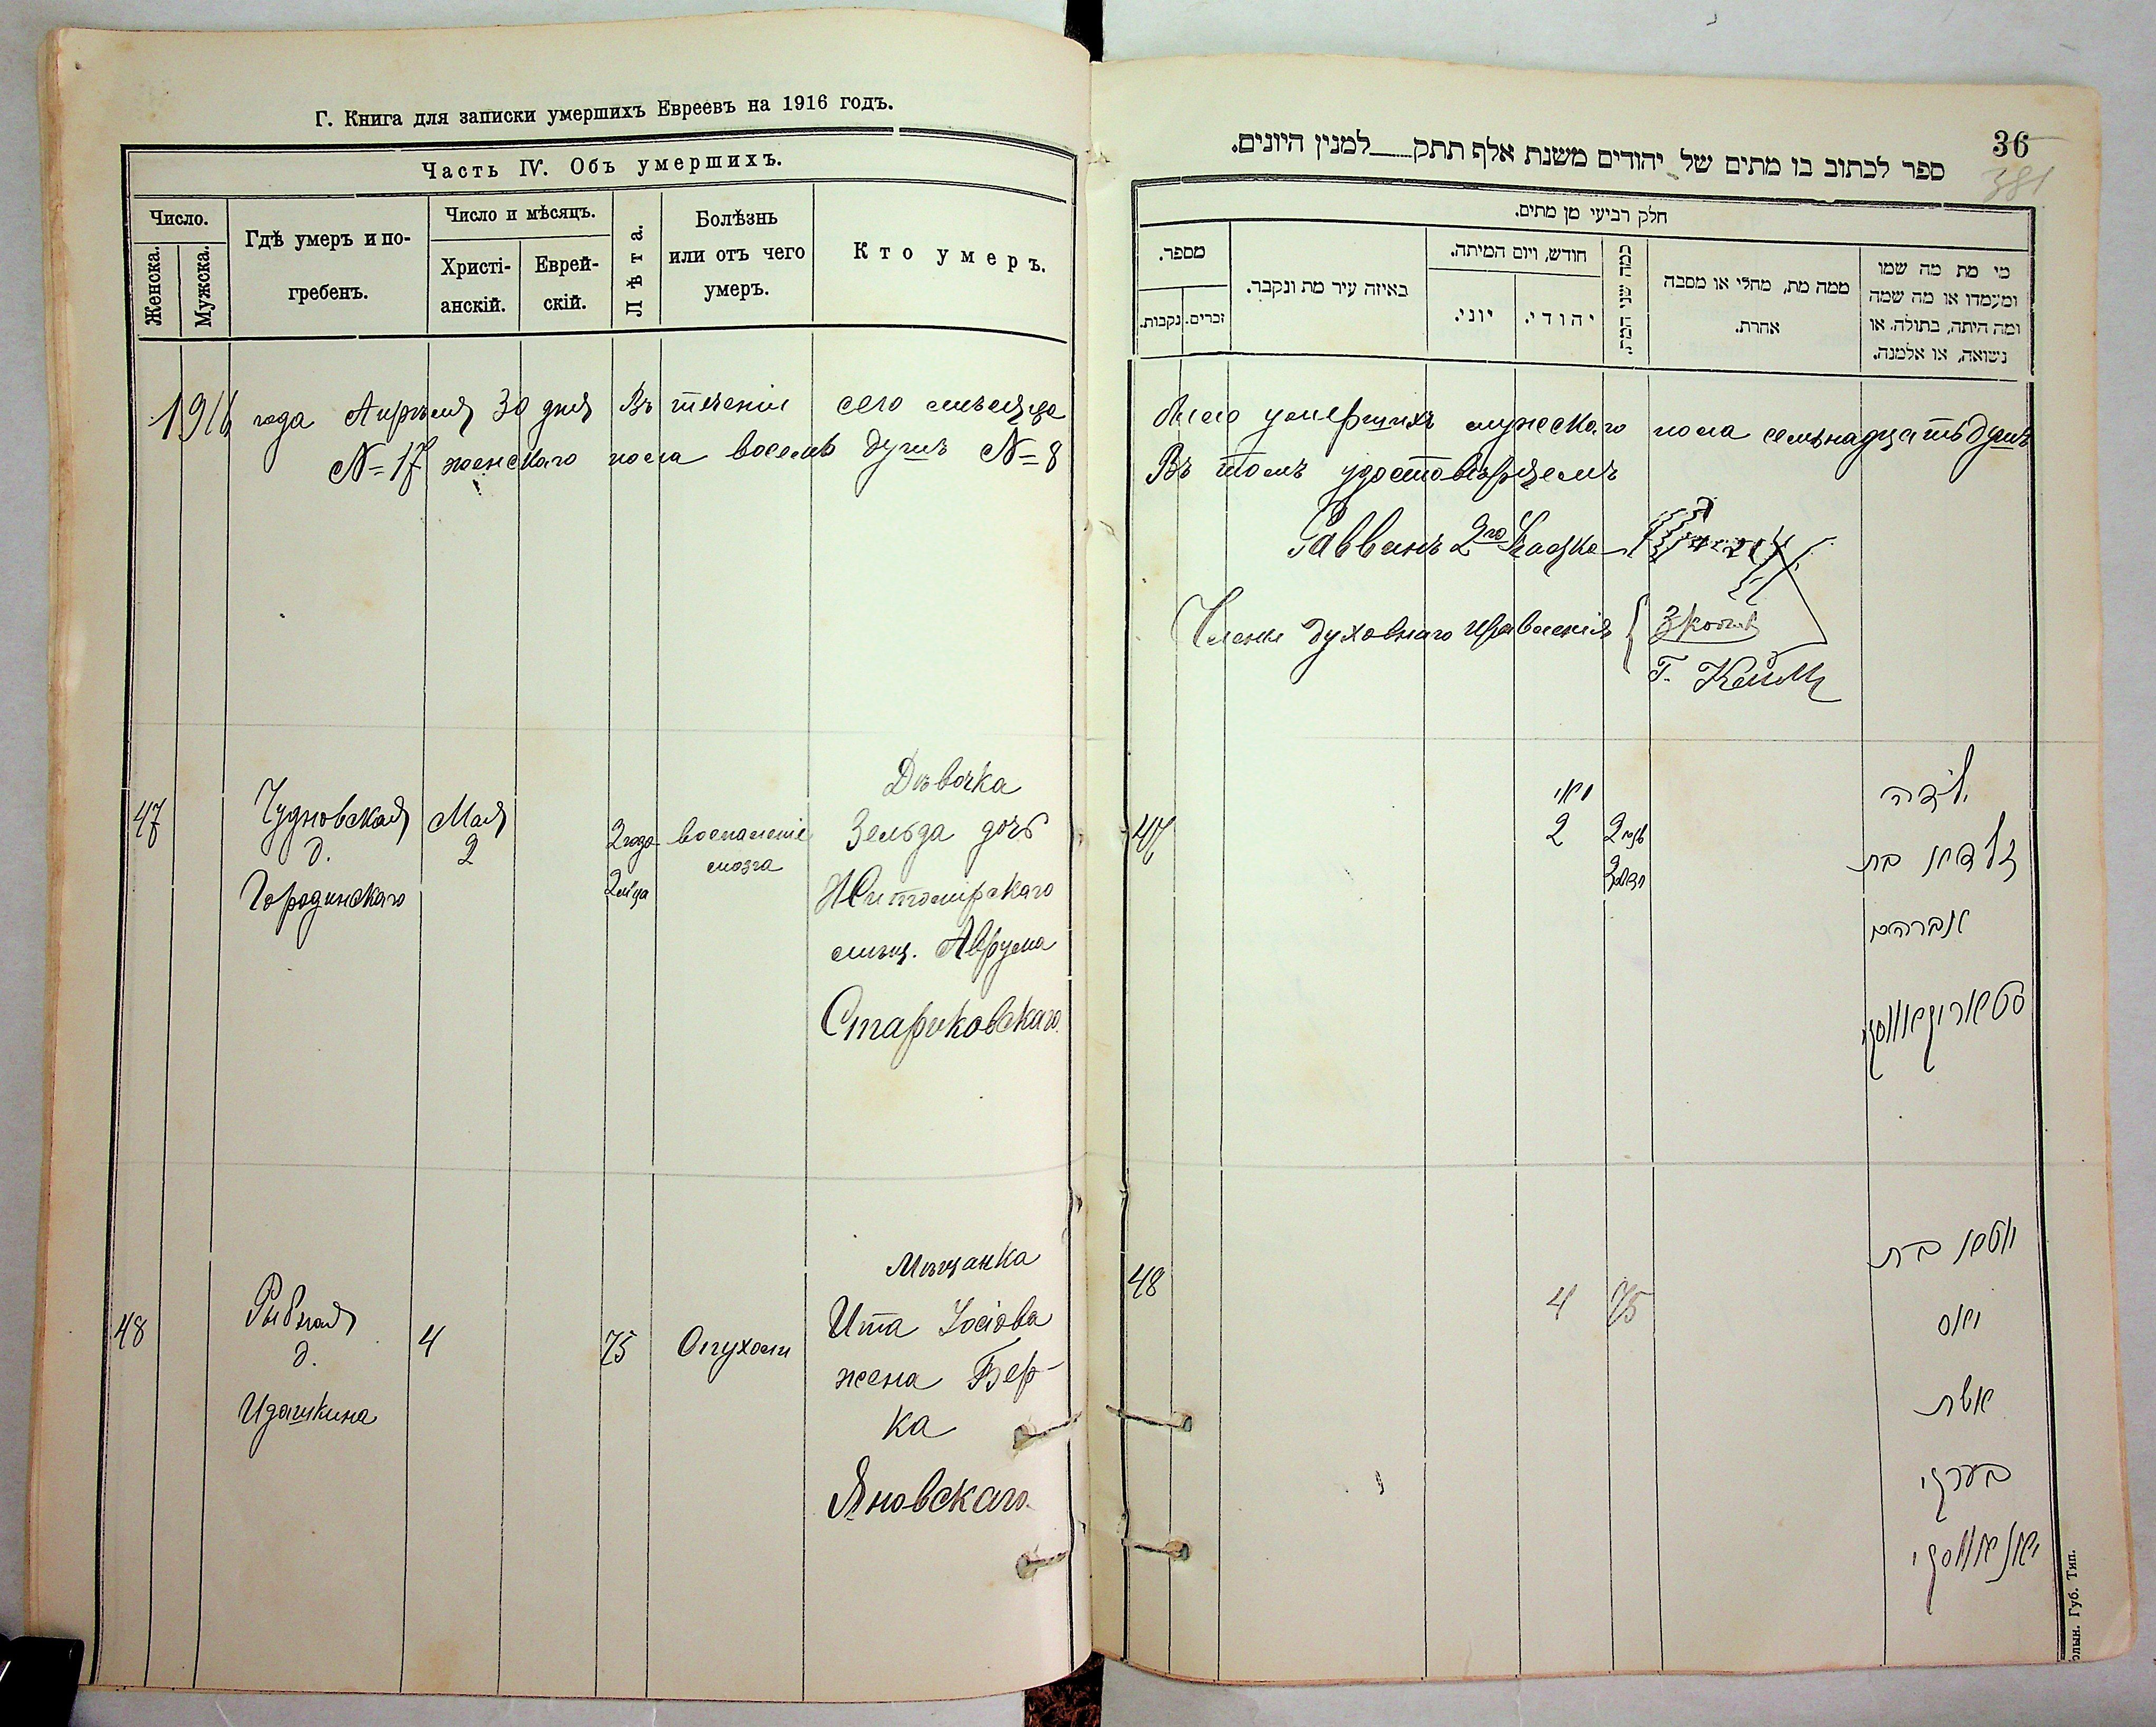 Г. Книга для записки умершихъ Евреевъ на 1916 годъ.
Часть IV. Объ умершихъ.
Число.
Женска.
Мужска.
Гдѣ умеръ и по-
гребенъ.
Число и мѣсяцъ.
Христі-
анскій.
Еврей-
скій.
Лѣта.
Болѣзнь
или отъ чего
умеръ.
Кто умеръ.
1916 года Апрѣля 30 дня Въ теченіи сего мѣсяца
№ 17 женскаго пола восемь душъ № 8
47
Чудновская
д.
Городинскаго
Мая
2
2 года
2 м-ца
воспаленіе
мозга
Дѣвочка
Зельда дочь
Житомирскаго
мѣщ. Аврума
Стариковскаго.
48
Рыбная
д.
Идашкина
4
75
Опухоли
Мѣщанка
Ита Іосіова
жена Бер-
ка
Яновскаго.
36
381
ספר לכתוב בו מתים של יהודים משנת אלף תתק___למנין היונים.
חלק רביעי מן מתים.
מספר.
זכרים.
נקבות.
באיזה עיר מת ונקבר.
חודש, ויום המיתה.
יוני.
יהודי.
כמה שני המת.
ממה מת, מחלי או מסבה
אחרת.
מי מת מה שמו
ומעמדו או מה שמה
ומה היתה, בתולה, או
נשואה, או אלמנה.
было умершихъ мужескаго пола семьнадцать душъ
Въ томъ удостовѣряемъ
Раввинъ 2го
Члены духовнаго правленія
Г. Кейлис
47
מאי
2
2
ילדה
זעלדא בת
אברהם
סטאריקאווסקי
48
4
75
איטא בת
יאס
אשת
בערקי
יאנאווסקי
олын. Губ. Тип.